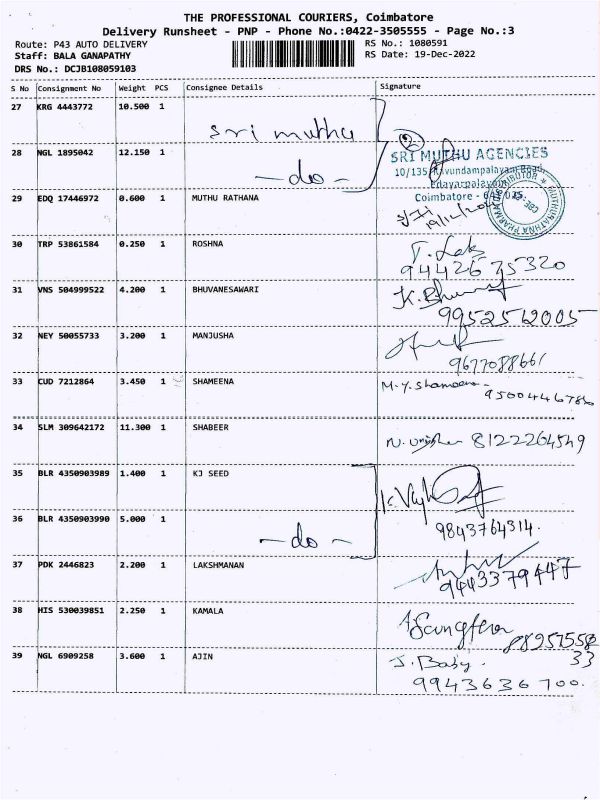 THE PROFESSIONAL COURIERS, Coimbatore
Delivery Runsheet - PNP - Phone No.:0422-3505555 - Page No.:3
Route: P43 AUTO DELIVERY
Staff: BALA GANAPATHY
DRS No.: DCJB108059103
RS No.: 1080591
RS Date: 19-Dec-2022
S No Consignment No Weight PCS Consignee Details Signature
27 KRG 4443772 10.500 1 Sri muthu
28 NGL 1895042 12.150 1 - do -
SRI MUTHU AGENCIES
Coimbatore
29 EDQ 17446972 0.600 1 MUTHU RATHANA
30 TRP 53861584 0.250 1 ROSHNA
9442675320
31 VNS 504999522 4.200 1 BHUVANESAWARI
9952512005
32 NEY 50055733 3.200 1 MANJUSHA
9677088661
33 CUD 7212864 3.450 1 SHAMEENA M.Y. Shameena
34 SLM 309642172 11.300 1 SHABEER 8122264549
35 BLR 4350903989 1.400 1 KJ SEED
36 BLR 4350903990 5.000 1 - do - 9843764314.
37 PDK 2446823 2.200 1 LAKSHMANAN
9443379447
38 HIS 530039851 2.250 1 KAMALA
39 NGL 6909258 3.600 1 AJIN J. Baby.
9943636700.